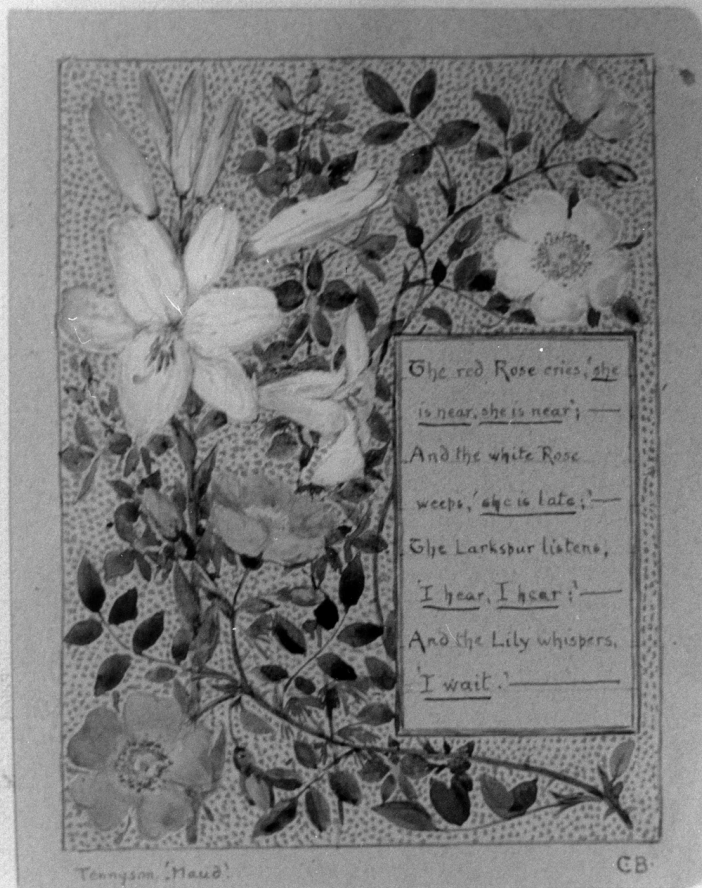 The red Rose cries, 'she
is near, she is near';—
And the white Rose
weeps, 'she is late;'—
The Larkspur listens,
'I hear, I hear;'—
And the Lily whispers,
'I wait.'—
Tennyson. 'Maud'.
CB.